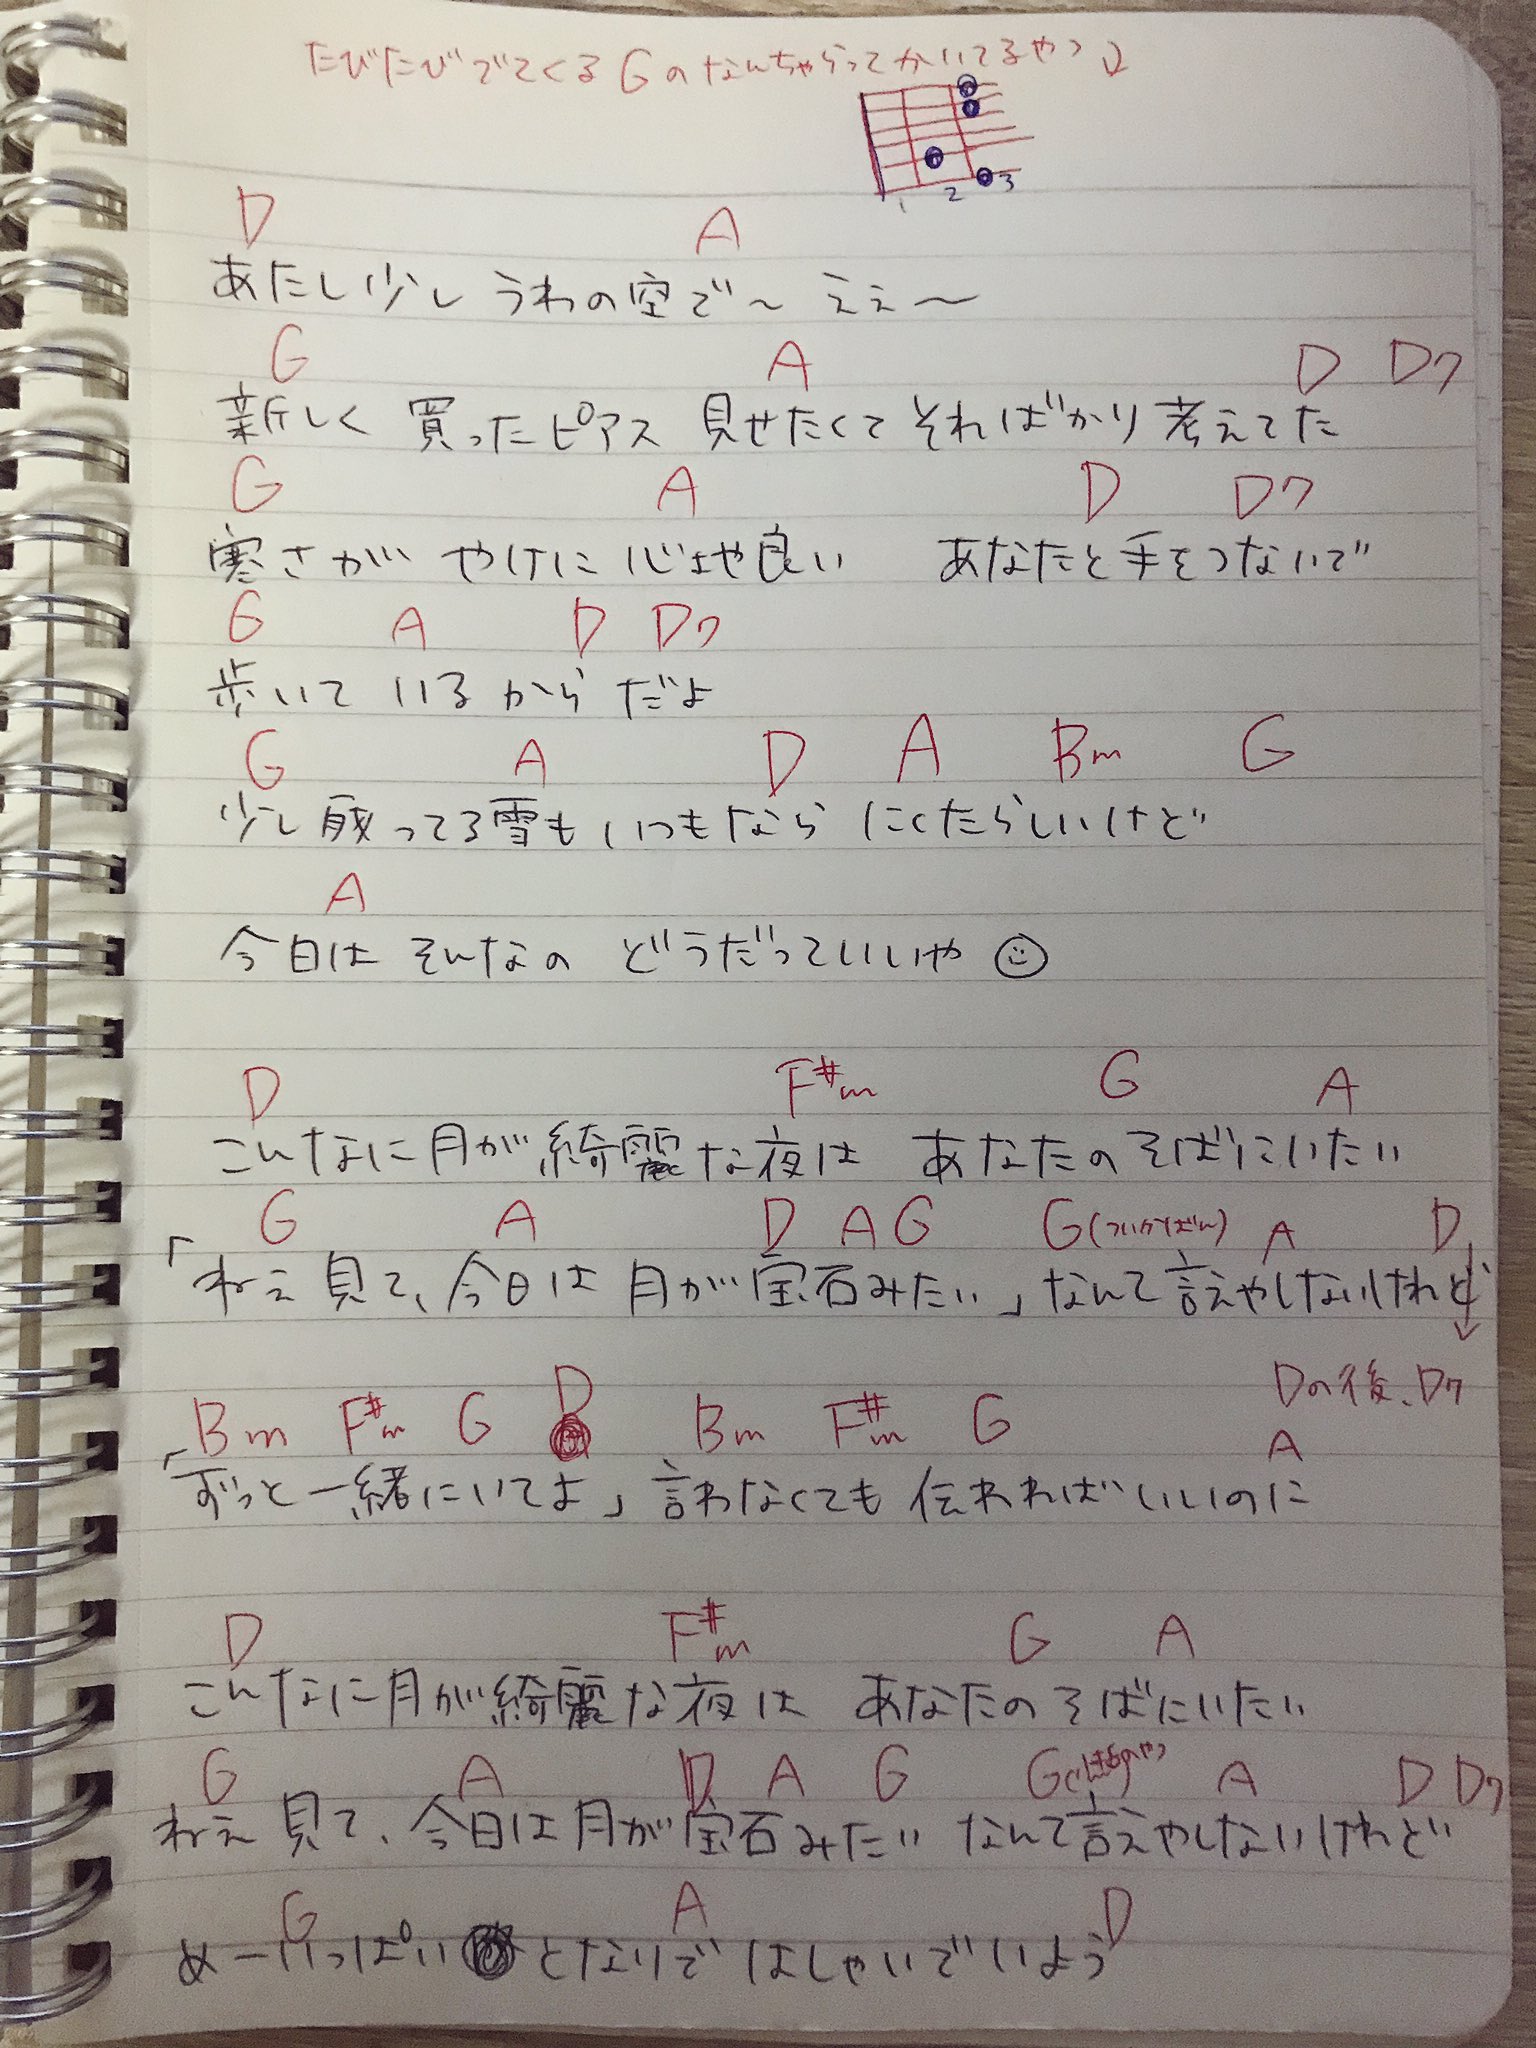 たびたびでてくるGのなんちゃらってかいてるやつ↓
1 2 3
D A
あたし少しうわの空で〜ええ〜
G A D D7
新しく買ったピアス 見せたくてそればかり考えてた
G A D D7
寒さが やけに心地良い あなたと手をつないで
G A D D7
歩いて いるから だよ
G A D A Bm G
少し残ってる雪もいつもなら にくたらしいけど
A
今日は そんなの どうだっていいや
D F#m G A
こんなに月が綺麗な夜は あなたのそばにいたい
G A D A G G( A D
「ねえ見て、今日は月が宝石みたい」なんて言えやしないけれど
Dの後、D7
Bm F#m G D Bm F#m G A
「ずっと一緒にいてよ」言わなくても伝わればいいのに
D F#m G A
こんなに月が綺麗な夜は あなたのそばにいたい
G A D A G G( A D D7
ねえ見て、今日は月が宝石みたい なんて言えやしないけれど
G A D
めーいっぱい となりで はしゃいでいよう